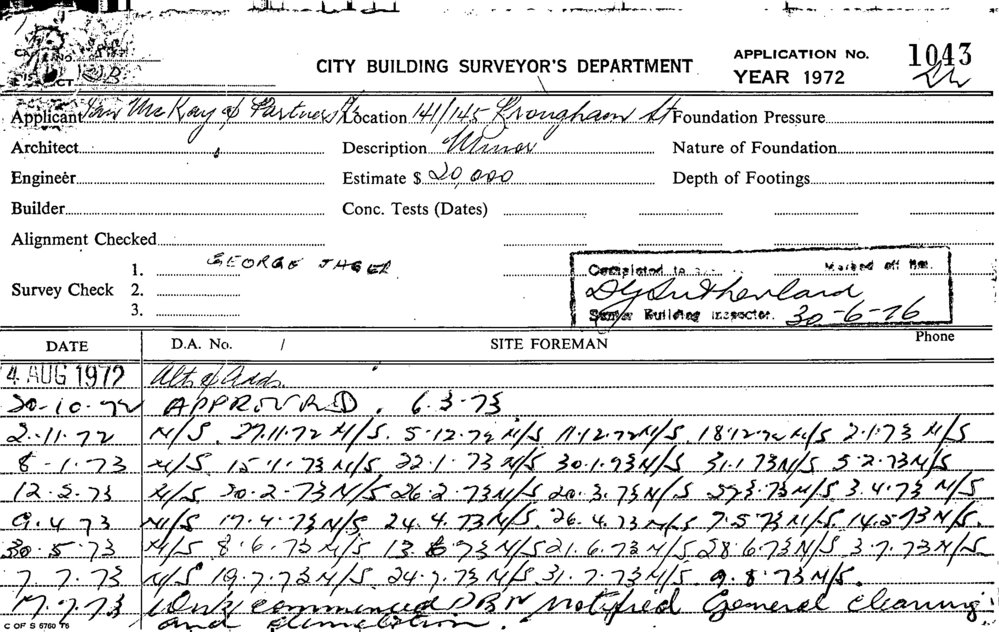 CITY BUILDING SURVEYOR'S DEPARTMENT
APPLICATION No. 1043
YEAR 1972
Applicant Ian McKay & Partners Location 141/145 Brougham St Foundation Pressure
Architect Description Minor Nature of Foundation
Engineer Estimate $ 20,000 Depth of Footings
Builder Conc. Tests (Dates)
Alignment Checked
1. GEORGE JAGER
Survey Check 2.
3.
Completed Marked off
DG Sutherland
Senior Building Inspector. 30-6-76
DATE D.A. No. / SITE FOREMAN Phone
4 AUG 1972 Alts & Adds.
20-10-72 APPROVED. 6.3.73
2-11-72 N/S. 27.11.72 N/S. 5-12-72 N/S 11.12.72 N/S. 18.12.72 N/S 2.1.73 N/S
8-1.73 N/S. 15.1.73 N/S 22.1.73 N/S 30.1.73 N/S 31.1.73 N/S 5.2.73 N/S
12.2.73 N/S 20.2.73 N/S 26.2.73 N/S 20.3.73 N/S 27.3.73 N/S 3.4.73 N/S
9.4.73 N/S 17.4.73 N/S 24.4.73 N/S. 26.4.73 N/S 7.5.73 N/S. 14.5.73 N/S.
30.5.73 N/S 8.6.73 N/S 13.6.73 N/S 21.6.73 N/S 28.6.73 N/S 3.7.73 N/S
7.7.73 N/S 19.7.73 N/S 24.7.73 N/S 31.7.73 N/S. 9.8.73 N/S.
17.7.73 Work commenced DBN notified General clearing
and demolition.
C OF S 6760 76